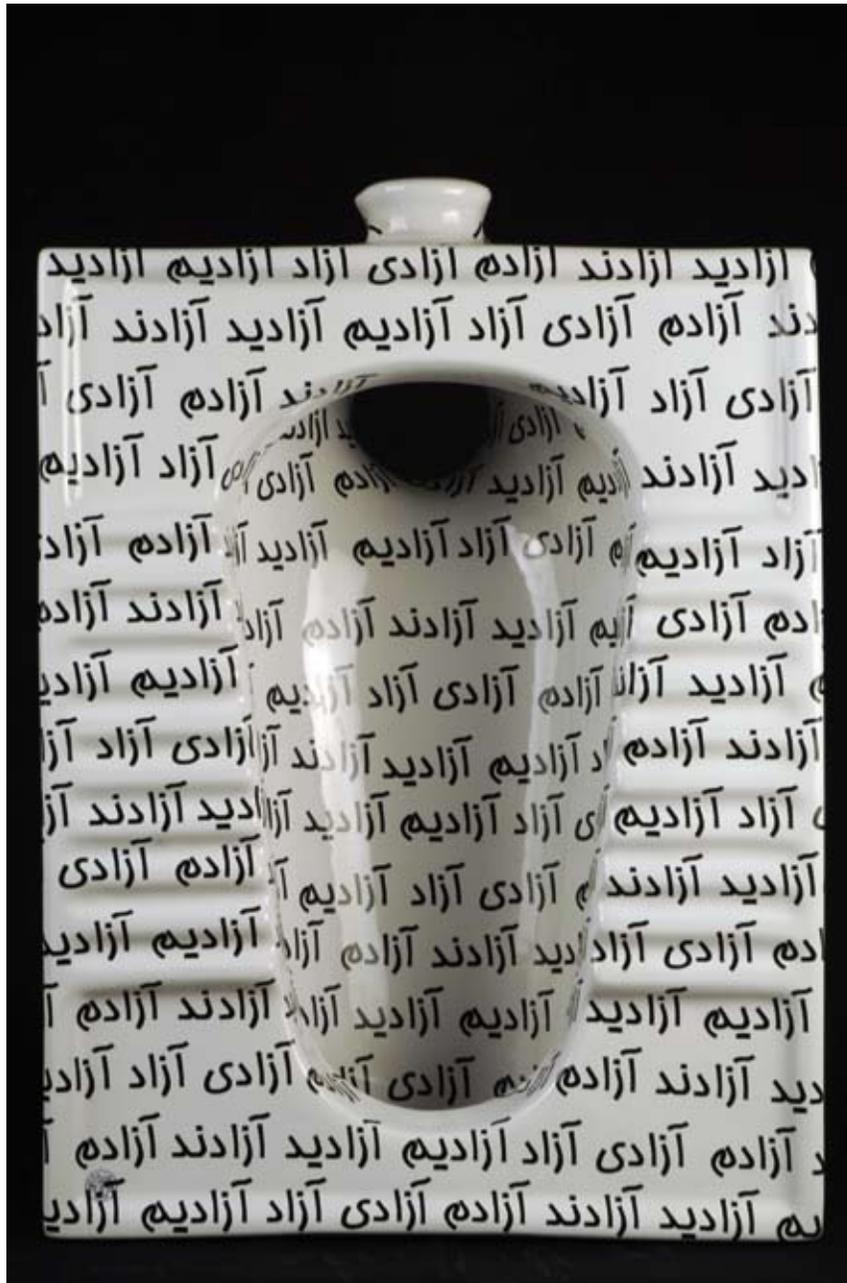 آزادید آزادند آزادم آزادی آزاد آزادیم آزادید
آزادم آزادی آزاد آزادیم آزادید آزادند
آزادی آزاد آزادیم آزادند آزادم آزادی
آزادی
آزادند آزادیم آزادید آزادند آزادم آزادی آزاد آزادیم
آزاد آزادیم آزادی آزاد آزادیم آزادید آزادم
آزادی آزادید آزادند آزادم آزادند آزادم
آزادید آزادم آزادی آزاد آزادیم آزادیم آزادید
آزادند آزادم آزادیم آزادید آزادند آزادی آزاد
آزاد آزادیم آزاد آزادیم آزادید آزادید آزادند
آزادید آزادند آزادی آزاد آزادیم آزادم آزادی
آزادی آزادند آزادم آزادیم آزادید
آزادیم آزادید آزادیم آزادید آزادند آزادم
آزادند آزادم آزادی آزادی آزاد
آزادم آزادی آزاد آزادیم آزادید آزادند آزادم
آزادید آزادند آزادم آزادی آزاد آزادیم آزادید